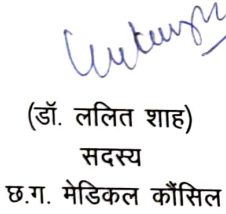 (डॉ. ललित शाह)
सदस्य
छ.ग. मेडिकल कौंसिल